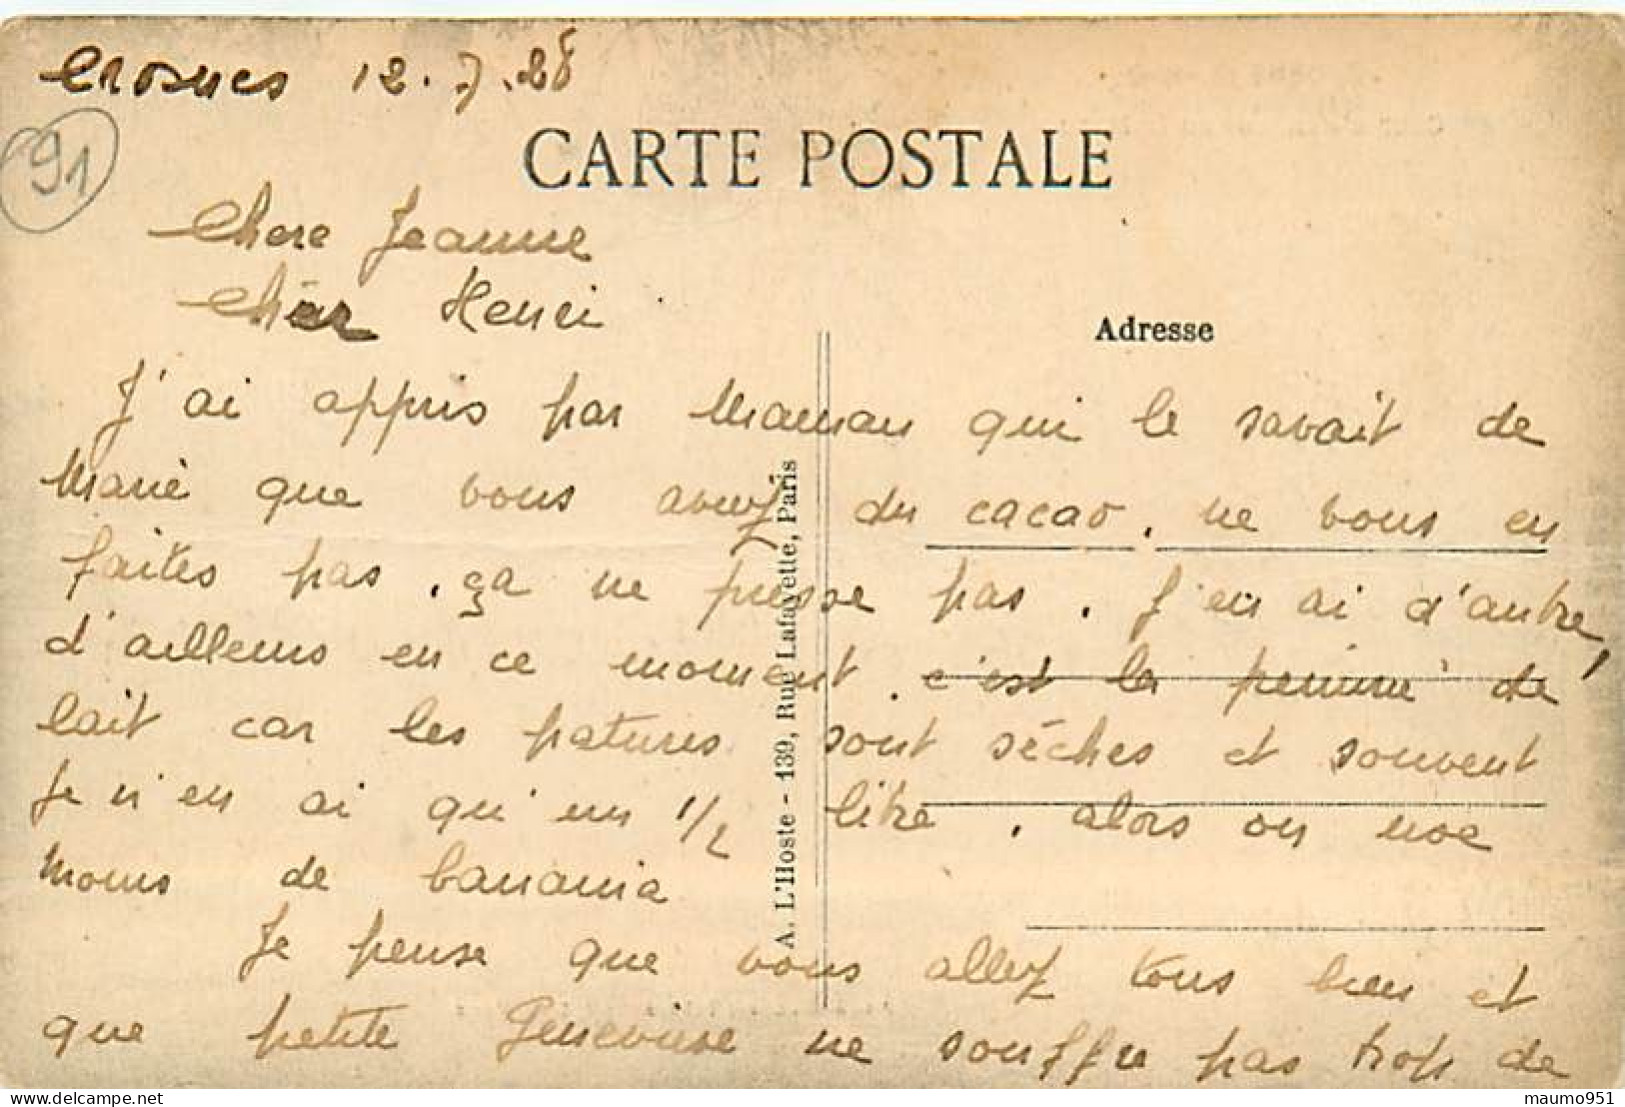 Crosnes 12.7.28
91
CARTE POSTALE
Chere Jeanne
Cher Henri
Adresse
J'ai appris par Maman qui le savait de
Marie que vous avez du cacao. ne vous en
faites pas. ça ne presse pas. J'en ai d'autre,
d'ailleurs en ce moment. c'est la penurie de
lait car les patures sont sèches et souvent
Je n'en ai qu'un 1/2 litre. alors on use
moins de banania
Je pense que vous allez tous bien et
que petite Genevieve ne souffre pas trop de
A. L'Hoste - 139, Rue Lafayette, Paris
maumo951